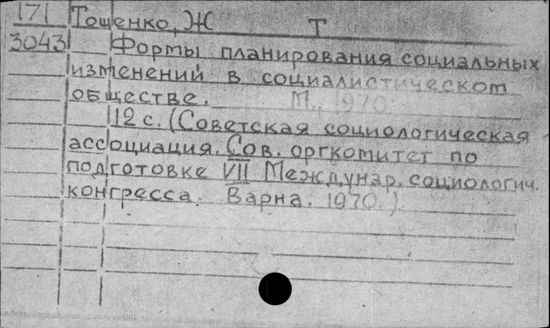 171 Тощенко, Ж Т
3043 Формы планирования социальных
изменений в социалистическом
обществе. М., 1970.
12 с. (Советская социологическая
ассоциация. Сов. оргкомитет по
подготовке VII Междунар. социологич.
конгресса. Варна. 1970.)